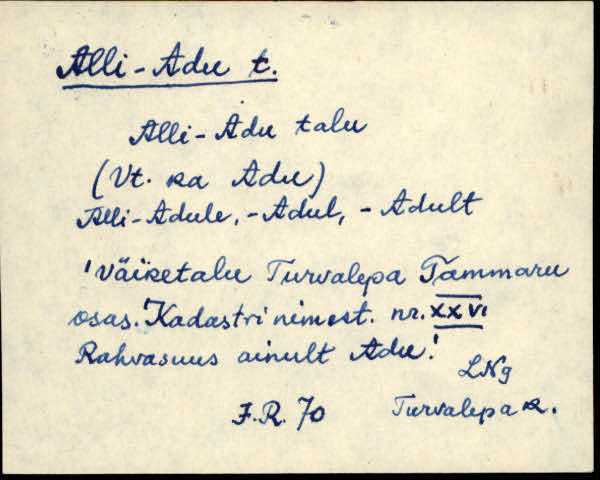 Alli-Adu t.
Alli-Adu talu
(Vt. ka Adu)
Alli-Adule, -Adul, -Adult
'Väiketalu Turvalepa Tammaru
osas. Kadastri nimest. nr. XXVI
Rahvasuus ainult Adu.'
LNg
F.R. 70 Turvalepa k.